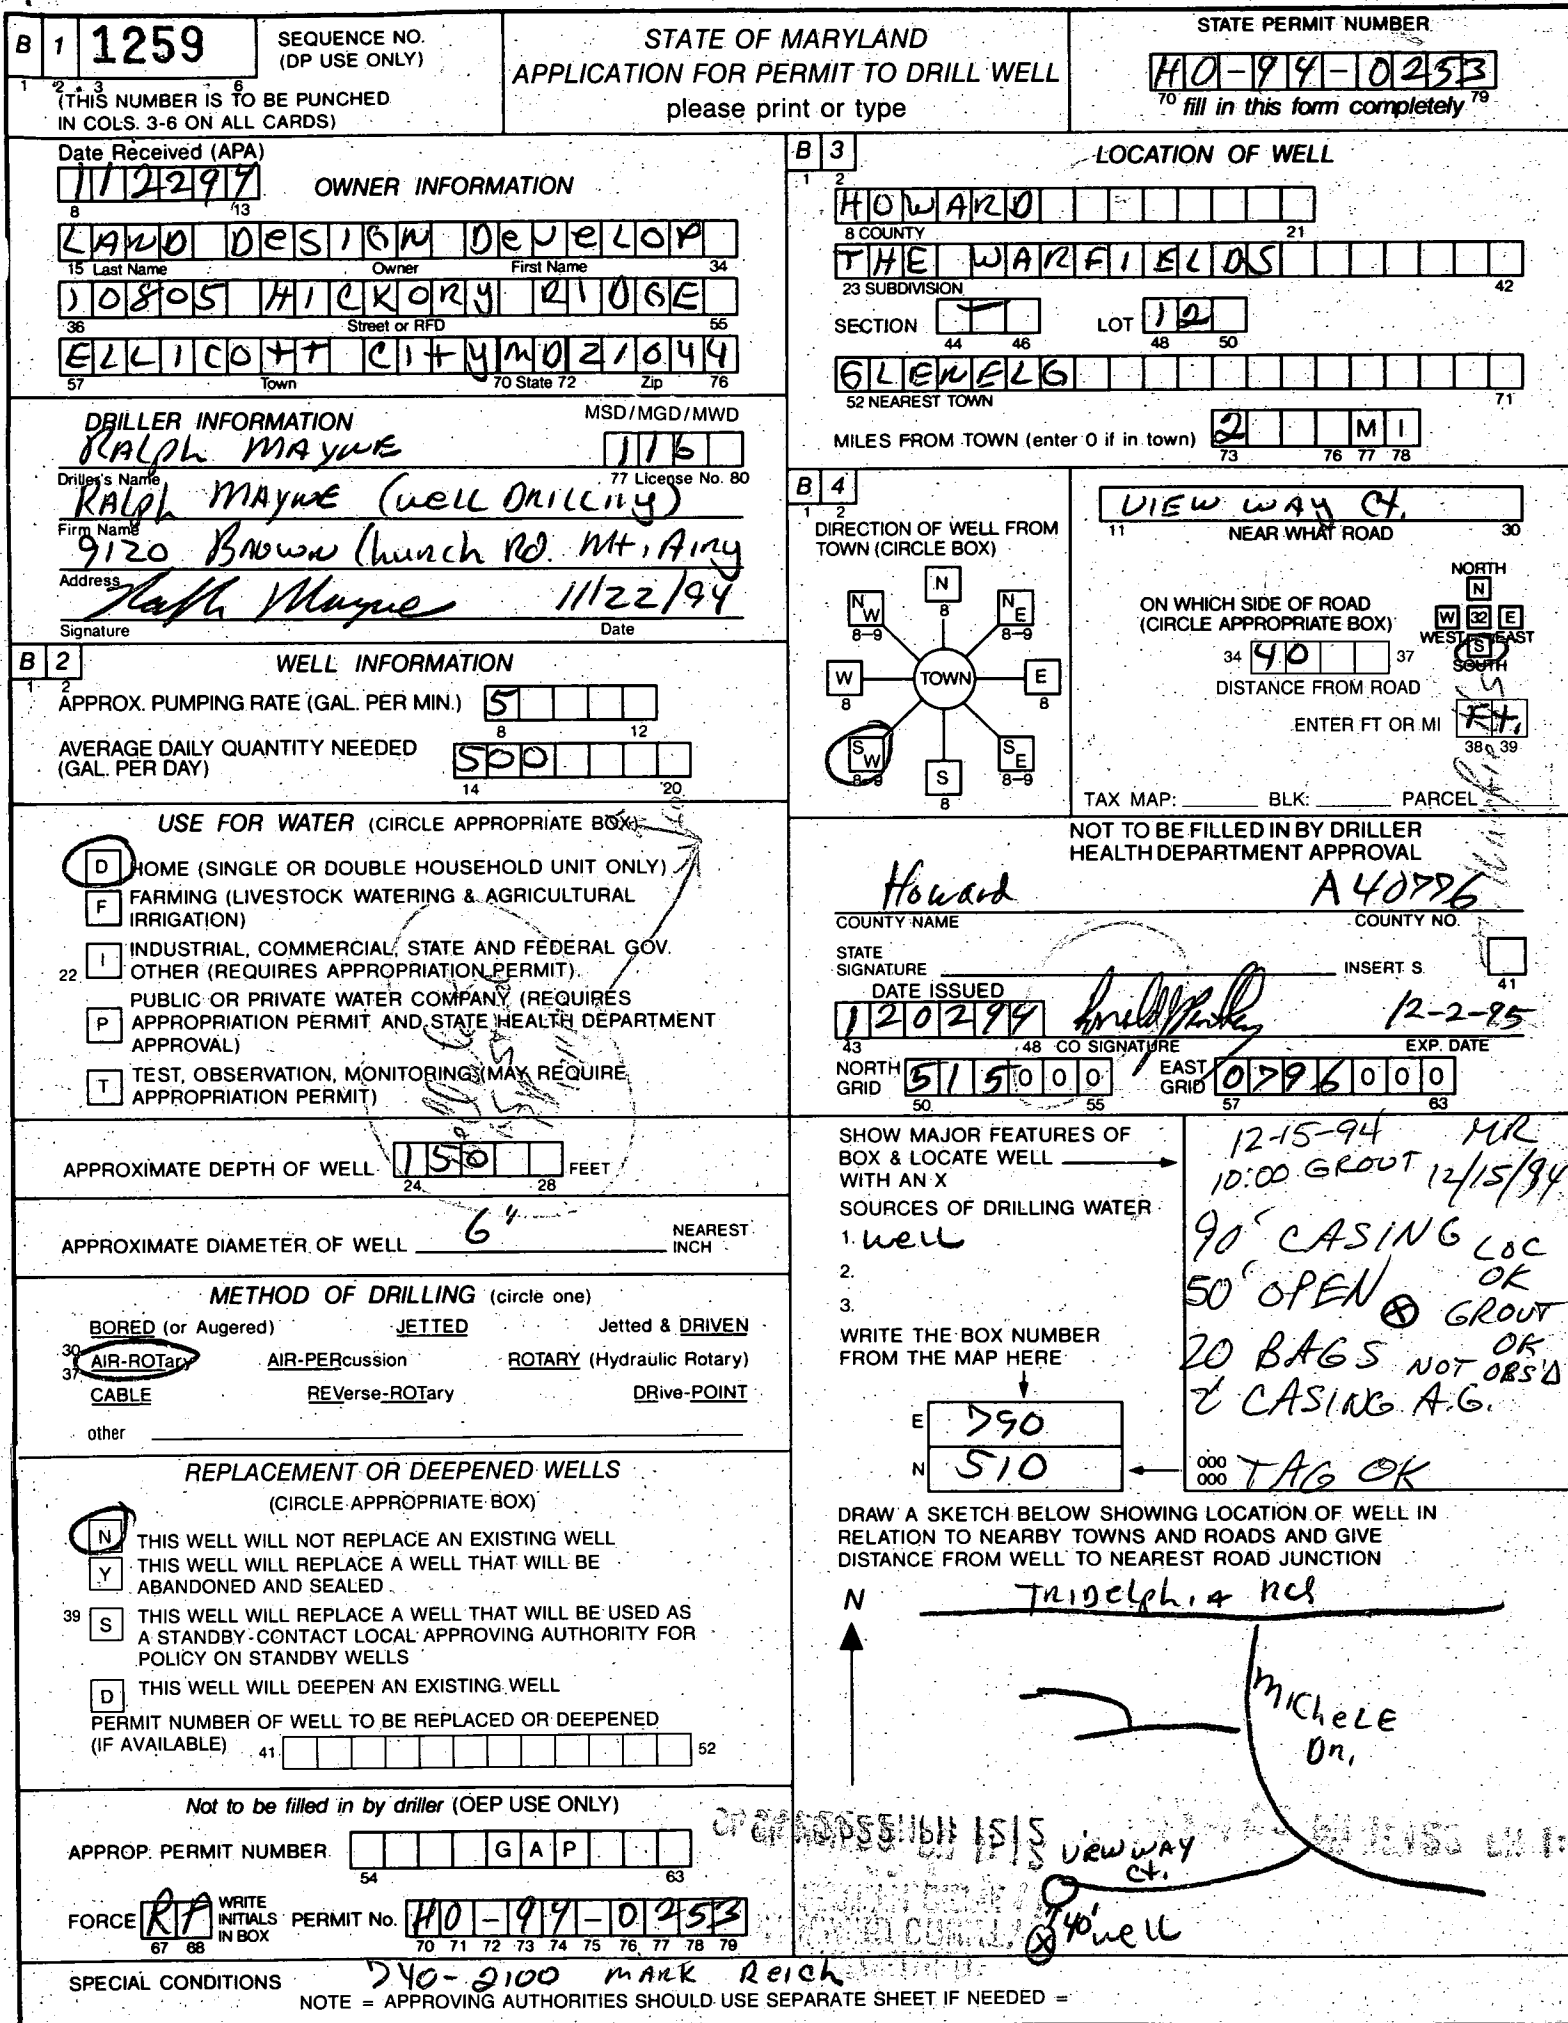 B 1 1259
SEQUENCE NO.
(DP USE ONLY)
1 2 3 6
(THIS NUMBER IS TO BE PUNCHED
IN COLS. 3-6 ON ALL CARDS)
STATE OF MARYLAND
APPLICATION FOR PERMIT TO DRILL WELL
please print or type
STATE PERMIT NUMBER
HO-94-0253
70 fill in this form completely 79
Date Received (APA)
112294
8 13
OWNER INFORMATION
LAND DESIGN DEVELOP
15 Last Name Owner First Name 34
10805 HICKORY RIDGE
36 Street or RFD 55
ELLICOTT CITY MD 21044
57 Town 70 State 72 Zip 76
DRILLER INFORMATION
MSD/MGD/MWD
RALPH MAYNE 116
Driller's Name 77 License No. 80
RALPH MAYNE (WELL DRILLING)
Firm Name
9120 Brown Church Rd. Mt. Airy
Address
Ralph Mayne 11/22/94
Signature Date
B 2
1 2
WELL INFORMATION
APPROX. PUMPING RATE (GAL. PER MIN.) 5
8 12
AVERAGE DAILY QUANTITY NEEDED
(GAL. PER DAY) 500
14 20
USE FOR WATER (CIRCLE APPROPRIATE BOX)
D HOME (SINGLE OR DOUBLE HOUSEHOLD UNIT ONLY)
F FARMING (LIVESTOCK WATERING & AGRICULTURAL
IRRIGATION)
22 I INDUSTRIAL, COMMERCIAL, STATE AND FEDERAL GOV.
OTHER (REQUIRES APPROPRIATION PERMIT)
P PUBLIC OR PRIVATE WATER COMPANY (REQUIRES
APPROPRIATION PERMIT AND STATE HEALTH DEPARTMENT
APPROVAL)
T TEST, OBSERVATION, MONITORING (MAY REQUIRE
APPROPRIATION PERMIT)
APPROXIMATE DEPTH OF WELL 150 FEET
24 28
APPROXIMATE DIAMETER OF WELL 6" NEAREST
INCH
METHOD OF DRILLING (circle one)
BORED (or Augered) JETTED Jetted & DRIVEN
30 AIR-ROTary AIR-PERcussion ROTARY (Hydraulic Rotary)
37 CABLE REVerse-ROTary DRive-POINT
other
REPLACEMENT OR DEEPENED WELLS
(CIRCLE APPROPRIATE BOX)
N THIS WELL WILL NOT REPLACE AN EXISTING WELL
Y THIS WELL WILL REPLACE A WELL THAT WILL BE
ABANDONED AND SEALED
39 S THIS WELL WILL REPLACE A WELL THAT WILL BE USED AS
A STANDBY-CONTACT LOCAL APPROVING AUTHORITY FOR
POLICY ON STANDBY WELLS
D THIS WELL WILL DEEPEN AN EXISTING WELL
PERMIT NUMBER OF WELL TO BE REPLACED OR DEEPENED
(IF AVAILABLE) 41 52
Not to be filled in by driller (OEP USE ONLY)
APPROP. PERMIT NUMBER GAP
54 63
FORCE RP WRITE
INITIALS
IN BOX
67 68
PERMIT No. HO-94-0253
70 71 72 73 74 75 76 77 78 79
SPECIAL CONDITIONS 740-2100 MARK Reich
NOTE = APPROVING AUTHORITIES SHOULD USE SEPARATE SHEET IF NEEDED =
B 3
1 2
LOCATION OF WELL
HOWARD
8 COUNTY 21
THE WARFIELDS
23 SUBDIVISION 42
SECTION LOT 12
44 46 48 50
GLENELG
52 NEAREST TOWN 71
MILES FROM TOWN (enter 0 if in town) 2 MI
73 76 77 78
B 4
1 2
DIRECTION OF WELL FROM
TOWN (CIRCLE BOX)
N
8
NW
8-9
NE
8-9
W
8
TOWN
E
8
SW
8-9
SE
8-9
S
8
VIEW WAY Ct.
11 NEAR WHAT ROAD 30
ON WHICH SIDE OF ROAD
(CIRCLE APPROPRIATE BOX)
NORTH
N
W 32 E
WEST EAST
S
SOUTH
34 40 37
DISTANCE FROM ROAD
ENTER FT OR MI Ft.
38 39
TAX MAP: BLK: PARCEL
NOT TO BE FILLED IN BY DRILLER
HEALTH DEPARTMENT APPROVAL
Howard A40776
COUNTY NAME COUNTY NO.
STATE
SIGNATURE INSERT S
41
DATE ISSUED
120294 12-2-95
43 48 CO SIGNATURE EXP. DATE
NORTH
GRID 515000
50 55
EAST
GRID 0796000
57 63
SHOW MAJOR FEATURES OF
BOX & LOCATE WELL
WITH AN X
SOURCES OF DRILLING WATER
1. well
2.
3.
WRITE THE BOX NUMBER
FROM THE MAP HERE
E 790
N 510
12-15-94 MR
10:00 GROUT 12/15/94
90' CASING LOC
OK
50' OPEN GROUT
OK
20 BAGS NOT OBS'D
2' CASING A.G.
000
000
TAG OK
DRAW A SKETCH BELOW SHOWING LOCATION OF WELL IN
RELATION TO NEARBY TOWNS AND ROADS AND GIVE
DISTANCE FROM WELL TO NEAREST ROAD JUNCTION
N
TRIDelphia Rd
MICHELE
Dr.
VIEWWAY
Ct.
40' well